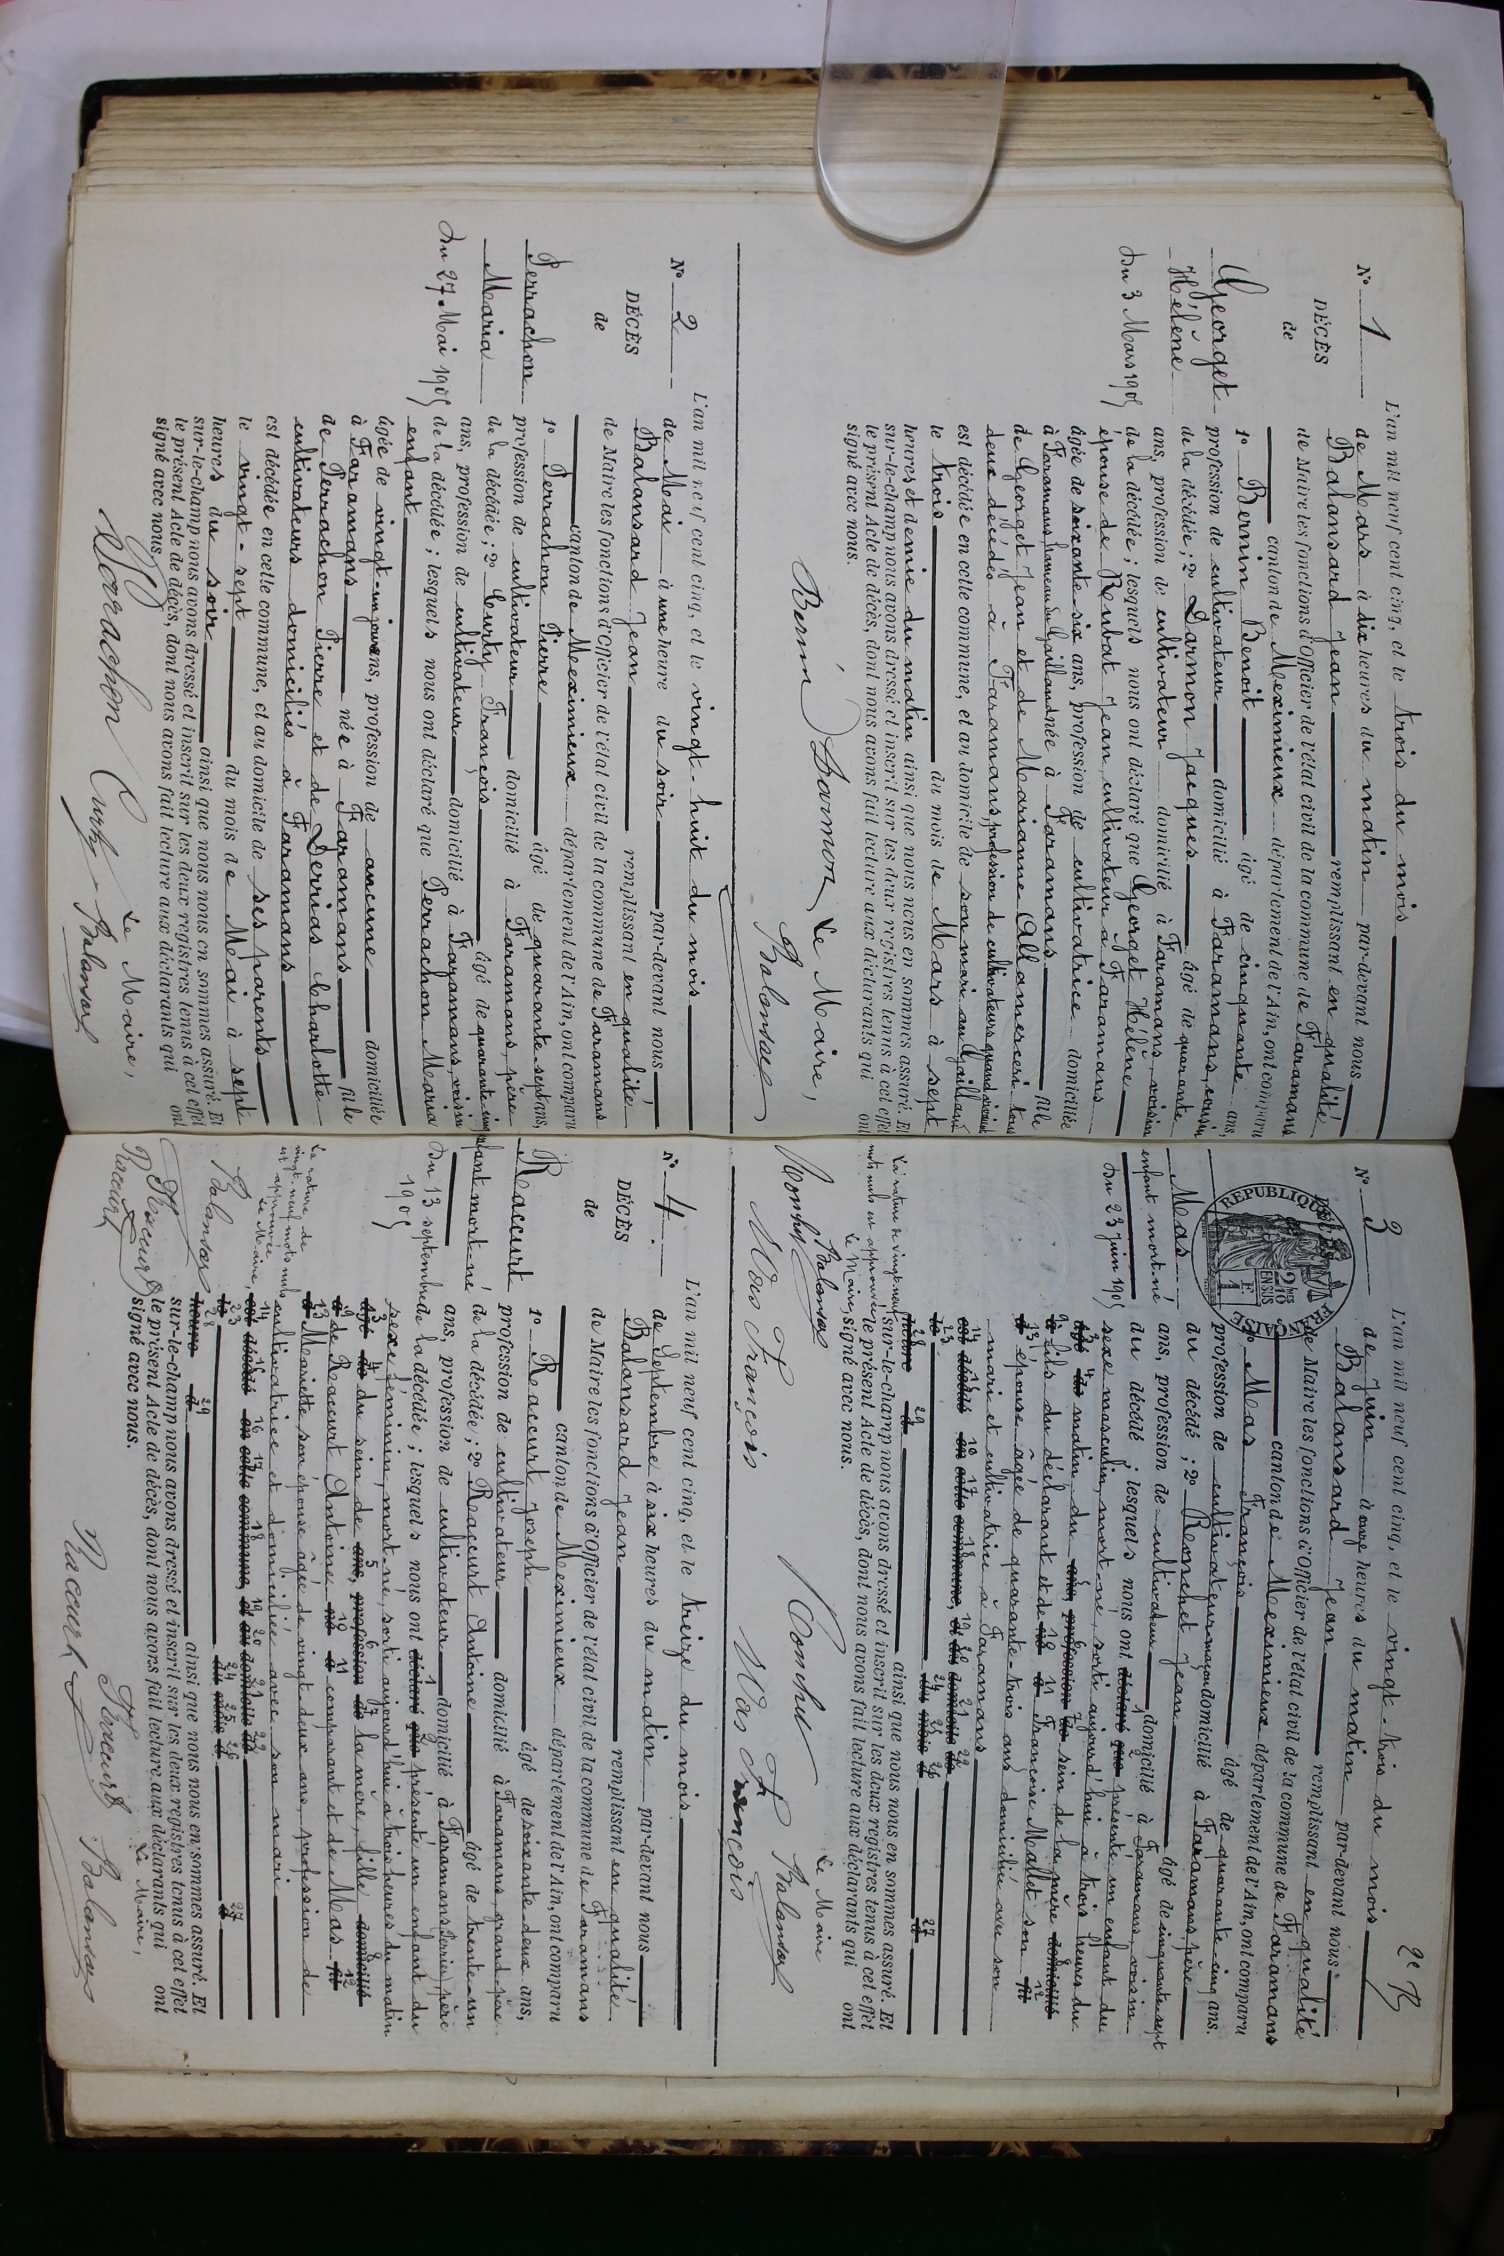 N° 1
DÉCÈS
de
Georget
Hélène
Du 3 Mars 1905
L'an mil neuf cent cinq, et le trois du mois
de Mars à dix heures du matin par-devant nous
Balansard Jean remplissant en qualité
de Maire les fonctions d'Officier de l'état civil de la commune de Faramans
canton de Meximieux département de l'Ain, ont comparu
1° Bernin Benoit âgé de cinquante ans,
profession de cultivateur domicilié à Faramans, cousin
de la décédée; 2° Darmon Jacques âgé de quarante
ans, profession de cultivateur domicilié à Faramans, voisin
de la décédée; lesquels nous ont déclaré que Georget Hélène
épouse de Rubat Jean, cultivateur à Faramans
âgée de soixante-six ans, profession de cultivatrice domiciliée
à Faramans, hameau du née à Faramans fille
de Georget Jean et de Marianne tous
deux décédés à Faramans, profession de cultivateurs quand vivaient
est décédée en cette commune, et au domicile de son mari au
le trois du mois de Mars à sept
heures et demie du matin ainsi que nous nous en sommes assuré. Et
sur-le-champ nous avons dressé et inscrit sur les deux registres tenus à cet effet
le présent Acte de décès, dont nous avons fait lecture aux déclarants qui ont
signé avec nous.
Le Maire,
Bernin Darmon Balansard
N° 2
DÉCÈS
de
Perrachon
Maria
Du 27 Mai 1905
L'an mil neuf cent cinq, et le vingt-huit du mois
de Mai à une heure du soir par-devant nous
Balansard Jean remplissant en qualité
de Maire les fonctions d'Officier de l'état civil de la commune de Faramans
canton de Meximieux département de l'Ain, ont comparu
1° Perrachon Pierre âgé de quarante-sept ans,
profession de cultivateur domicilié à Faramans, père
de la décédée; 2° Curty François âgé de quarante-cinq
ans, profession de cultivateur domicilié à Faramans, voisin
de la décédée; lesquels nous ont déclaré que Perrachon Maria
enfant
âgée de vingt-un jours ans, profession de aucune domiciliée
à Faramans née à Faramans fille
de Perrachon Pierre et de Derrias Charlotte
cultivateurs domiciliés à Faramans
est décédée en cette commune, et au domicile de ses parents
le vingt-sept du mois de Mai à sept
heures du soir ainsi que nous nous en sommes assuré. Et
sur-le-champ nous avons dressé et inscrit sur les deux registres tenus à cet effet
le présent Acte de décès, dont nous avons fait lecture aux déclarants qui ont
signé avec nous.
Le Maire,
Perrachon Curty Balansard
N° 3
DÉCÈS
REPUBLIQUE FRANÇAISE
2/10 EN SUS
Mas
enfant mort-né
Du 23 juin 1905
L'an mil neuf cent cinq, et le vingt-trois du mois
de Juin à onze heures du matin par-devant nous
Balansard Jean remplissant en qualité
de Maire les fonctions d'Officier de l'état civil de la commune de Faramans
canton de Meximieux département de l'Ain, ont comparu
1° Mas François âgé de quarante-cinq ans.
profession de cultivateur maçon domicilié à Faramans, père
du décédé; 2° Ronchet Jean âgé de cinquante-sept
ans, profession de cultivateur domicilié à Faramans, voisin
du décédé; lesquels nous ont déclaré que présenté un enfant du
sexe masculin, mort-né, sorti aujourd'hui à trois heures du
âgé de matin, du ans, profession de sein de la mère domicilié
à fils du déclarant et de né à Françoise Mallet son fil
d épouse âgée de quarante-trois ans domiciliée avec son
mari et cultivatrice à Faramans
est décédé en cette commune, et au domicile de
le du mois d à
heure d ainsi que nous nous en sommes assuré. Et
sur-le-champ nous avons dressé et inscrit sur les deux registres tenus à cet effet
le présent Acte de décès, dont nous avons fait lecture aux déclarants qui ont
signé avec nous.
La rature de vingt-neuf
mots nuls est approuvée
Le Maire,
Balansard
Mas François
Le Maire
Mas François Balansard
N° 4
DÉCÈS
de
Raccurt
enfant mort-né
Du 13 septembre
1905
L'an mil neuf cent cinq, et le treize du mois
de Septembre à six heures du matin par-devant nous
Balansard Jean remplissant en qualité
de Maire les fonctions d'Officier de l'état civil de la commune de Faramans
canton de Meximieux département de l'Ain, ont comparu
1° Raccurt Joseph âgé de soixante-deux ans,
profession de cultivateur domicilié à Faramans, grand-père
de la décédée; 2° Raccurt Antoine âgé de trente-un
ans, profession de cultivateur domicilié à Faramans père
de la décédée; lesquels nous ont déclaré que présenté un enfant du
sexe féminin, mort-né, sorti aujourd'hui à trois heures du matin
âgé de du sein de ans, profession de la mère, fille domicilié
à de Raccurt Antoine né à comparant et de Mas fil
d Mariette son épouse âgée de vingt-deux ans, profession de
cultivatrice et domiciliée avec son mari
est décédé en cette commune, et au domicile de
le du mois d à
heure d ainsi que nous nous en sommes assuré. Et
sur-le-champ nous avons dressé et inscrit sur les deux registres tenus à cet effet
le présent Acte de décès, dont nous avons fait lecture aux déclarants qui ont
signé avec nous.
La rature de
vingt-neuf mots nuls
est approuvée
Le Maire,
Balansard
Raccurt
Le Maire,
Raccurt Balansard